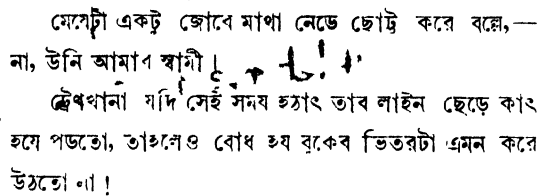 মেয়েটা একটু জোরে মাথা নেড়ে ছোট্ট করে বল্লে,—
না, উনি আমার স্বামী !
ট্রেণখানা যদি সেই সময় হঠাৎ তার লাইন ছেড়ে কাৎ
হয়ে পড়তো, তাহলেও বোধ হয় বুকের ভিতরটা এমন করে
উঠতো না !